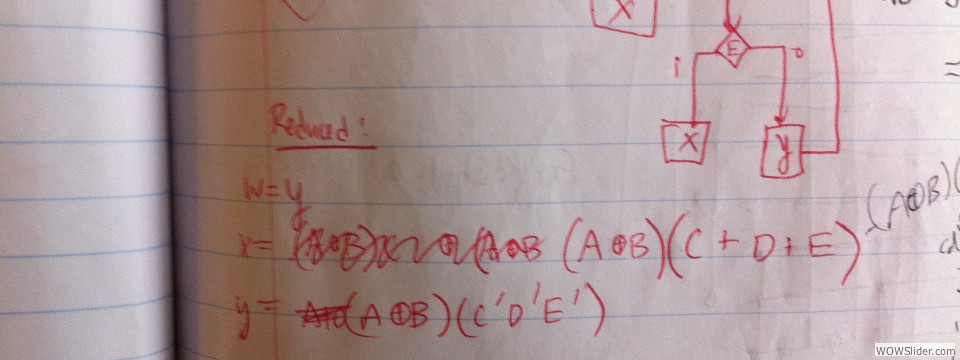 X
E
1
0
X
y
Reduced:
W = y
x = (A⊕B)(C + D + E)
(A⊕B)(
y = (A⊕B)(C'D'E')
WOWSlider.com